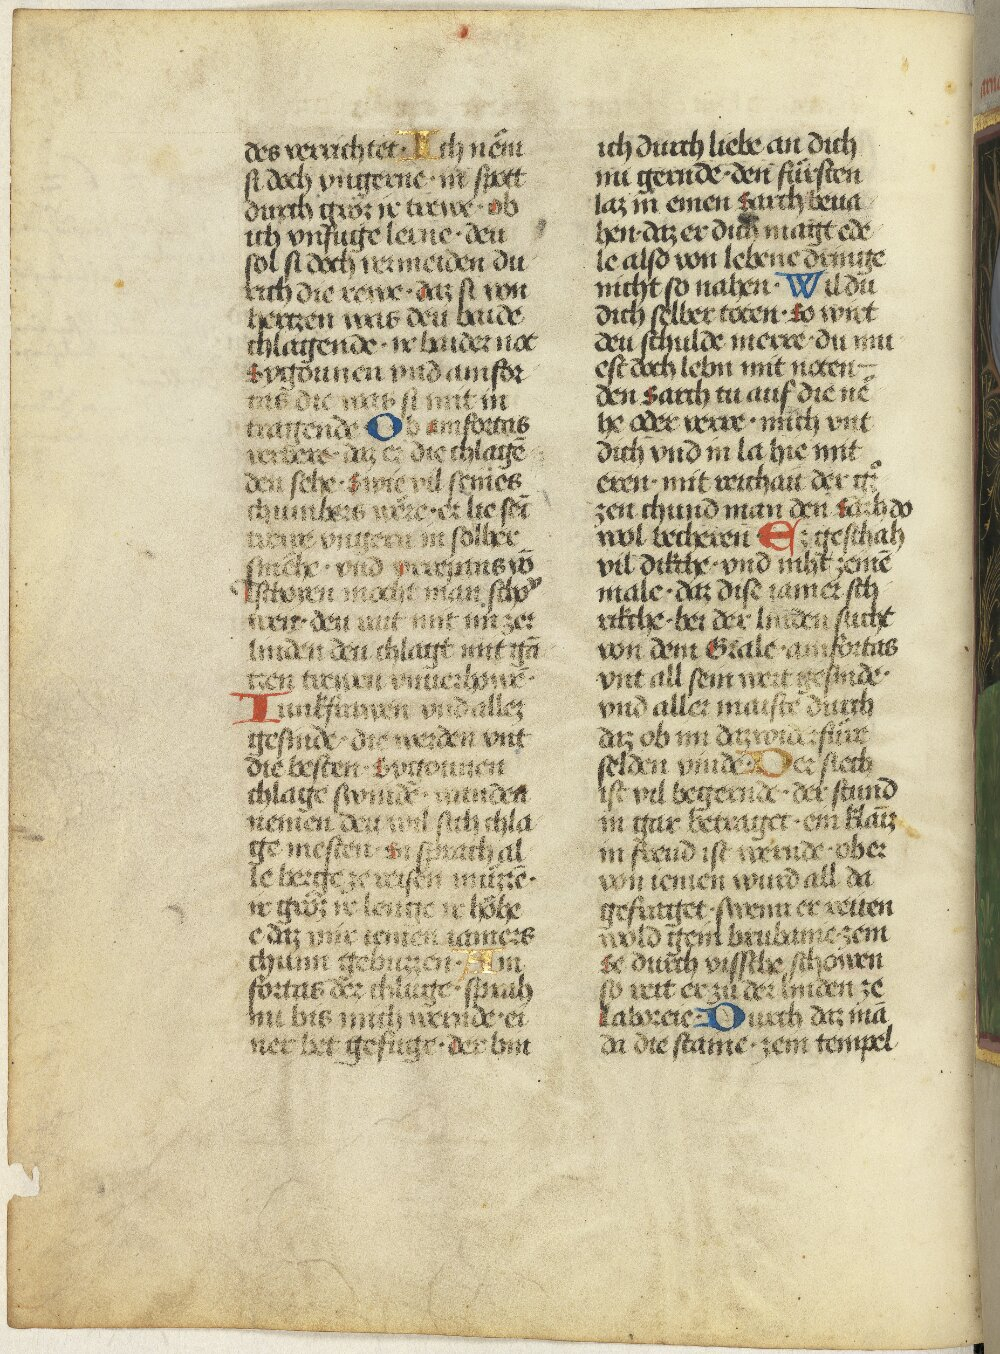 des verrichtet · Ich nem̄
si doch vngerne · in spott
durch gröz ir trewe · ob
ich vnfuge lerne · den
sol si doch vermeiden du
rich die rewe · daz si von
hertzen was den baide
chlagende · ir baider not
Sygounen vnd amfor
tas die was si mit in
tragende Ob amfortas
verbere · daz er die chlagē
den sehe · Swie vil seines
chumbers wëre · er lie sei
trewe vngern in solher
smehe · vnd
man scho
wen · den mit
linden den chlagt mit gā
tzen trewen vnuerhowē ·
Iunkfrawen vnd aller
gesinde · die werden vnt
die besten · Sygounen
chlage swinde · wunden
nemen den wil sich chla
ge mesten · Si sprach al
le berge ze reisen müzzē ·
ir gröz ir lenge ir höhe
e daz mir iemen iamers
chunn gebuzzen · Am
fortas der chlage · sprah
nu bis mich wernde · ei
ner bet gefuge · der bin
ich durch liebe an dich
nu gernde · den fürsten
laz in einen Sarch bewa
hen · daz er dich maget ede
le also von lebene dringe
nicht so nahen · Wil du
dich selber töten · So wirt
den schulde merre · du mu
est doch lebn mit nöten
den Sarch tu auf die nē
he oder verre · mich vnt
dich vnd in la hie mit
eren · mit reichait der
zen chund man den Sarh do
wol becheren Ez geschah
vil dikche · vnd niht zeinē
male · daz dise iamer sch
rikche · bei der linden sucht
von dem Grale · amfortas
vnt all sein wert gesinde ·
vnd aller maiste durch
daz ob im da wider füre
selden vinde · Der siech
ist vil begernde · der stund
in gar betraget · ein klaiz
in freud ist wernde · ob er
von iemen wurd all da
gefraget · swenn er reiten
wold gein brubanie · zem
Se durch vissche schowen
so reit er zü der linden ze
Laboreie · Durch daz mā
da die stame · zem tempel